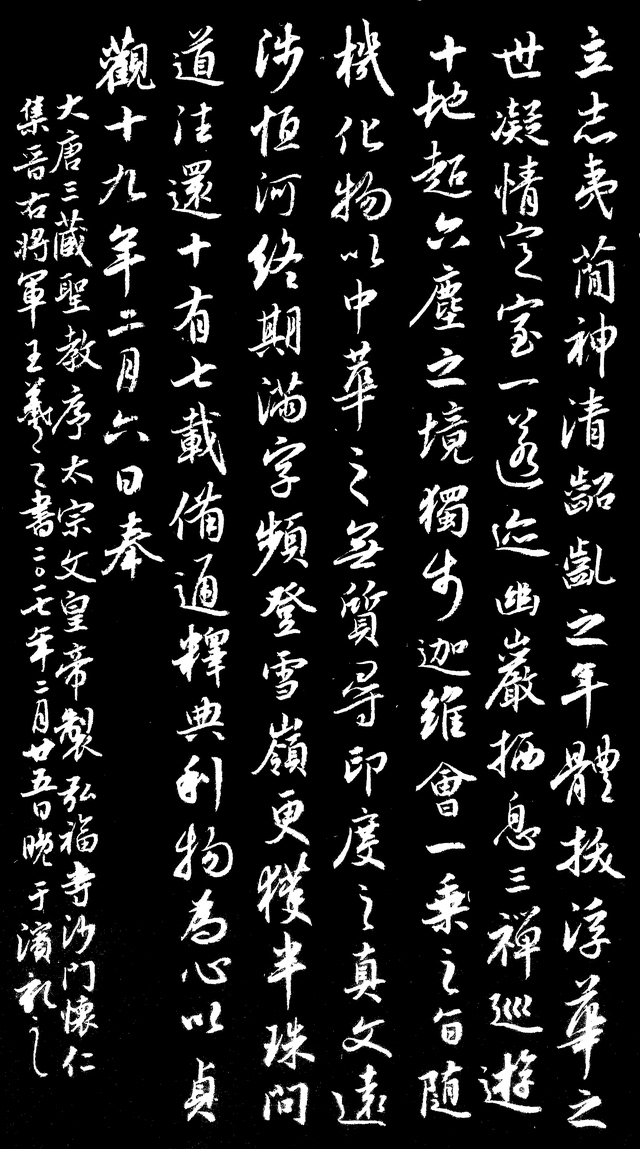 立志夷簡神清齠齔之年體拔浮華之
世凝情定室匿迹幽巖栖息三禪巡遊
十地超六塵之境獨步迦維會一乘之旨隨
機化物以中華之無質尋印度之真文遠
涉恒河終期滿字頻登雪嶺更獲半珠問
道往還十有七載備通釋典利物為心以貞
觀十九年二月六日奉
大唐三藏聖教序太宗文皇帝製弘福寺沙門懷仁
集晉右將軍王羲之書二〇一七年二月廿五日晚于濱